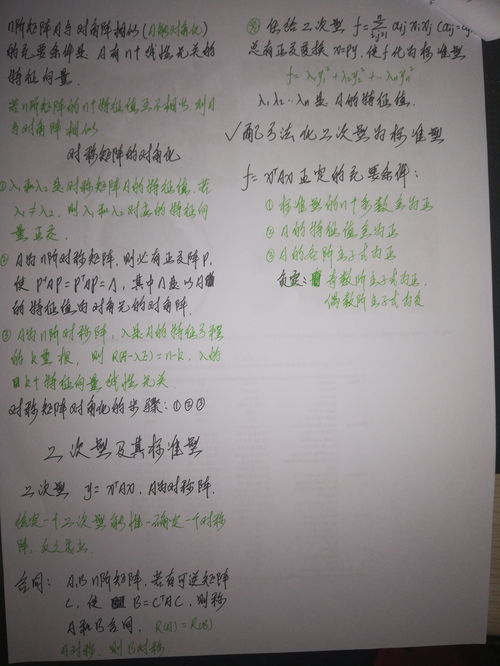 n阶矩阵A与对角阵相似(A能对角化)
的充要条件是 A有n个线性无关的
特征向量.
若n阶矩阵的n个特征值互不相等,则A
与对角阵相似
对称矩阵的对角化
①λ₁和λ₂是对称矩阵A的特征值,若
λ₁≠λ₂,则λ₁和λ₂对应的特征向
量正交.
② A为n阶对称矩阵,则必有正交阵P,
使 P⁻¹AP=PᵀAP=Λ,其中Λ是以A
的特征值为对角元的对角阵.
③ A为n阶对称阵,λ是A的特征方程
的k重根,则 R(A-λE)=n-k,λ的
k个特征向量线性无关.
对称矩阵对角化的步骤:①②③
二次型及其标准型
二次型 y=xᵀAx,A为对称阵.
给定一个二次型能唯一确定一个对称
阵,反之
合同: A,B n阶矩阵,若有可逆矩阵
C,使 B=CᵀAC,则称
A和B合同, R(A)=R(B)
A对称,则B对称
任给二次型 f=Σaij xi xj (aij=aji
总有正交变换 x=Py,使f化为标准型
f=λ₁y₁²+λ₂y₂²+…λnyn²
λ₁,λ₂…λn是A的特征值.
√配方法化二次型为标准型
f=xᵀAx正定的充要条件:
① 标准型的n个系数全为正
② A的特征值全为正
③ A的各阶主子式为正
负定: 奇数阶主子式为正
偶数阶主子式为负